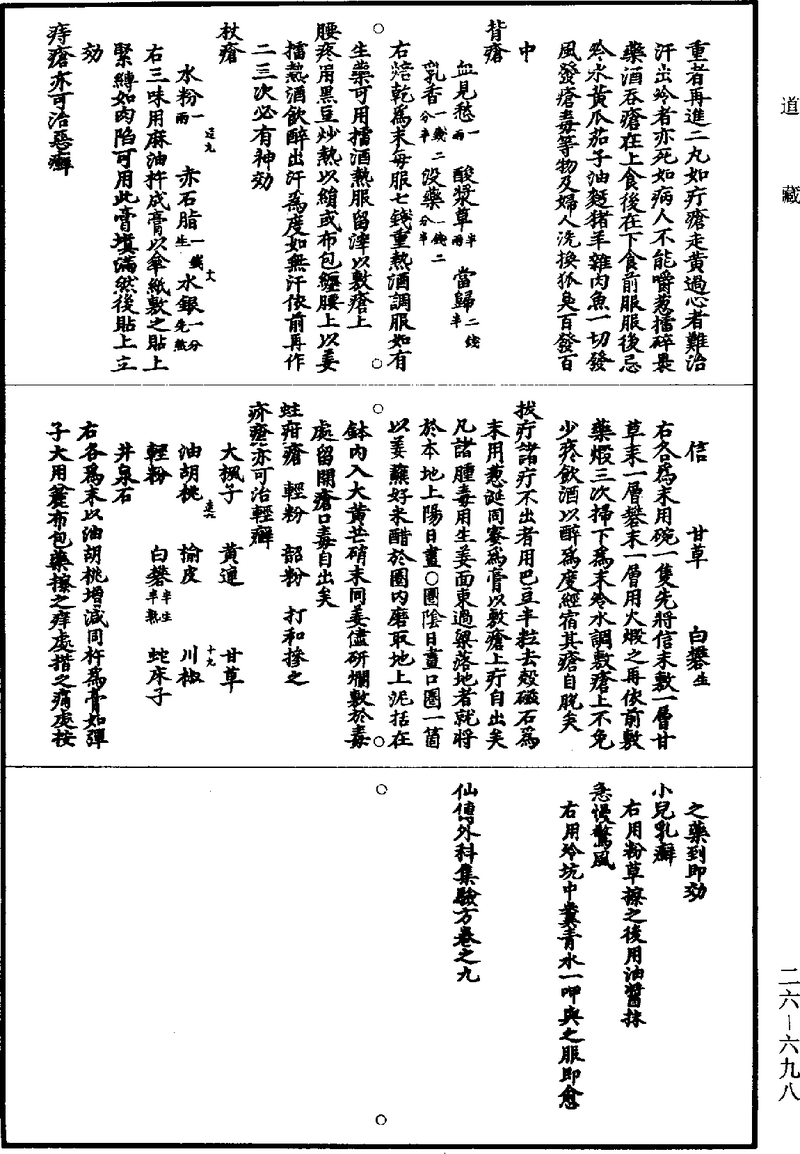 道藏
重者再進二丸如疔瘡走黃過心者難治
汗出冷者亦死如病人不能嚼葱擂碎裹
藥酒吞瘡在上食後在下食前服服後忌
冷水黃瓜茄子油麪猪羊雜肉魚一切發
風發瘡毒等物及婦人洗換狐臭百發百
中
背瘡
血見愁一兩 酸漿草半兩 當歸二錢半
乳香一錢二分半 沒藥一錢二分半
右焙乾爲末每服七錢重熱酒調服如有
生藥可用擂酒熱服留滓以敷瘡上
腰疼用黑豆炒熱以絹或布包纏腰上以姜
擂熱酒飲醉出汗爲度如無汗依前再作
二三次必有神効
杖瘡
水粉一兩 赤石脂生一錢 水銀一分先煞
右三味用麻油杵成膏以傘紙敷之貼上
緊縛如肉陷可用此膏填滿然後貼上立
効
痔瘡亦可治惡癬
信 甘草 白礬生
右各爲末用碗一隻先將信末敷一層甘
草末一層礬末一層用火煅之再依前敷
藥煅三次掃下爲末冷水調敷瘡上不免
少疼飲酒以醉爲度經宿其瘡自脫矣
拔疔諸疔不出者用巴豆半粒去殼磁石爲
末用葱涎同蜜爲膏以敷瘡上疔自出矣
凡諸腫毒用生姜面東過梁落地者就將
於本地上陽日畫○圈陰日畫口圈一箇
以姜蘸好米醋於圈内磨取地上泥括在
鉢内入大黃芒硝末同姜儘研爛敷於毒
處留開瘡口毒自出矣
蛀疳瘡 輕粉 韶粉 打和摻之
疥瘡亦可治輕癬
大楓子 黃連 甘草
油胡桃 榆皮 川椒
輕粉 白礬半生半熟 蛇床子
井泉石
右各爲末以油胡桃增減同杵爲膏如彈
子大用麄布包藥擦之痒處揩之痛處按
之藥到即効
小兒乳癬
右用粉草擦之後用油醤抹
急慢驚風
右用冷坑中糞青水一呷與之服即愈
仙傳外科集驗方卷之九
二六—六九八